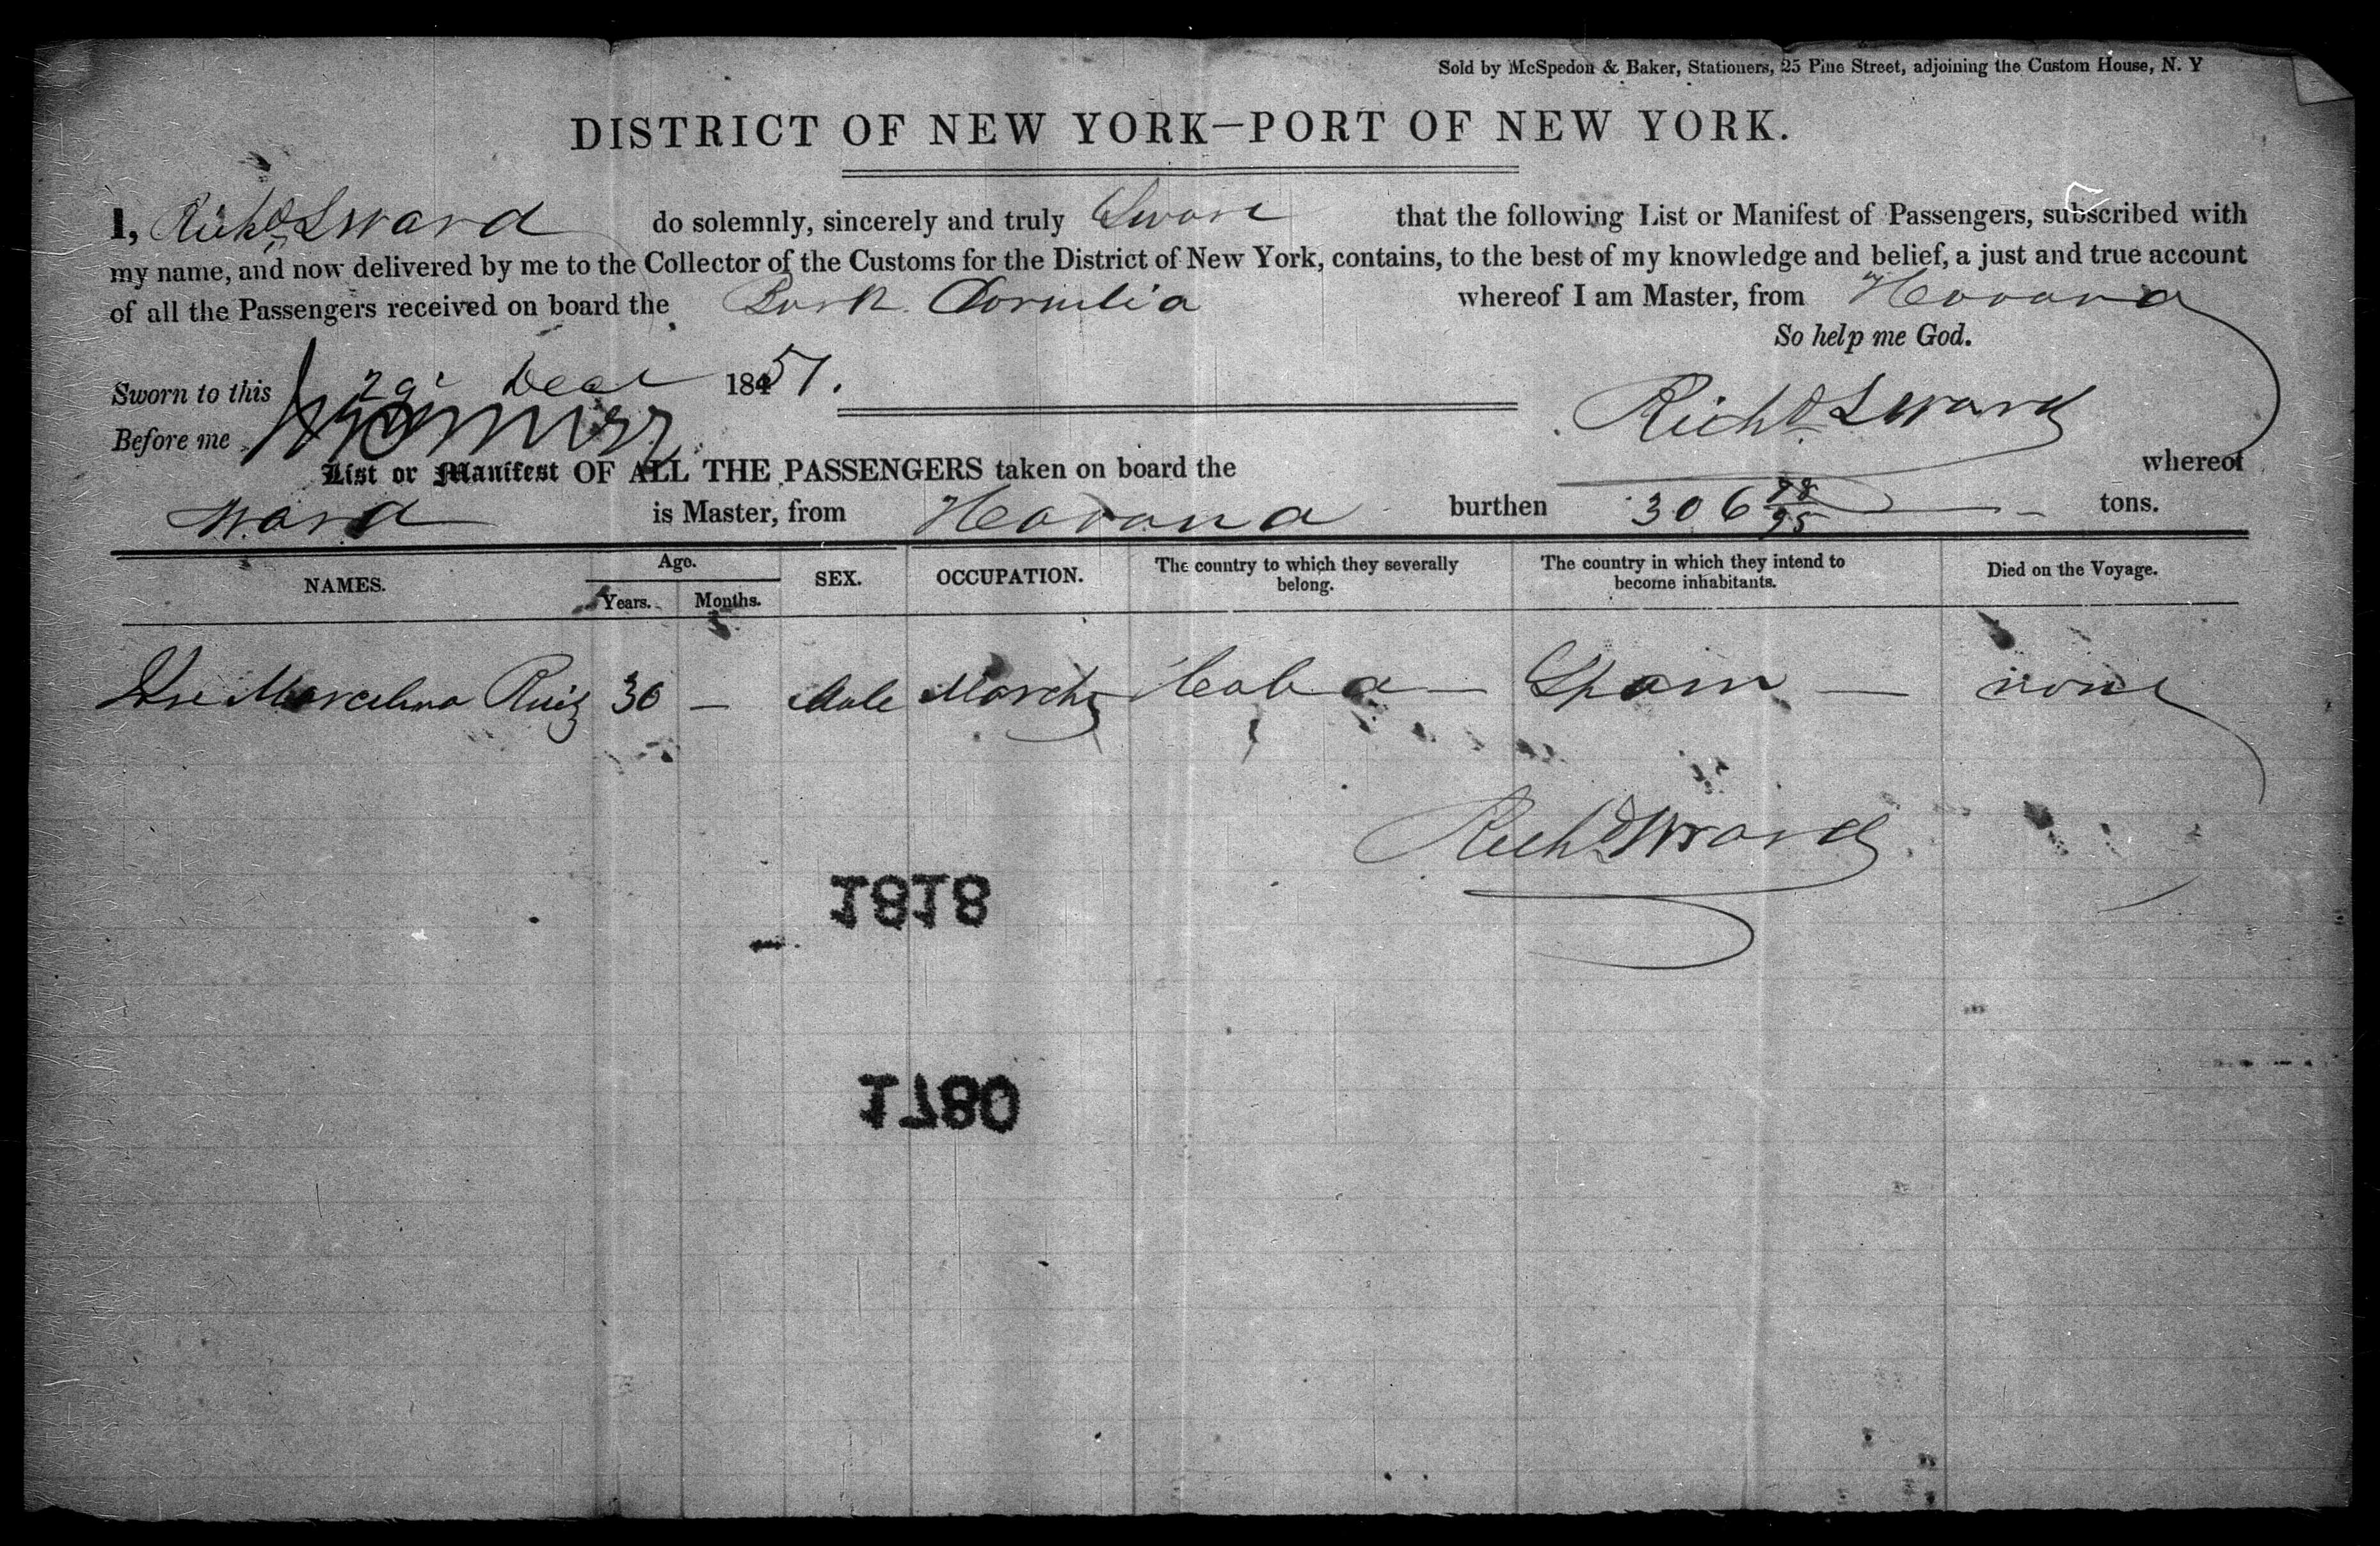 Sold by McSpedon & Baker, Stationers, 25 Pine Street, adjoining the Custom House, N. Y
DISTRICT OF NEW YORK—PORT OF NEW YORK.
I, Richd S Ward do solemnly, sincerely and truly Swore that the following List or Manifest of Passengers, subscribed with
my name, and now delivered by me to the Collector of the Customs for the District of New York, contains, to the best of my knowledge and belief, a just and true account
of all the Passengers received on board the Bark Cornelia whereof I am Master, from Havana
So help me God.
Sworn to this 29 Decr 1851.
Richd S Ward
Before me
List or Manifest OF ALL THE PASSENGERS taken on board the whereof
Ward is Master, from Havana burthen 306 88/95 tons.
NAMES. Age. Years. Months. SEX. OCCUPATION. The country to which they severally belong. The country in which they intend to become inhabitants. Died on the Voyage.
Marcelino Ruiz 30 — Male Marcht Spain — none
Richd S Ward
1818
1780